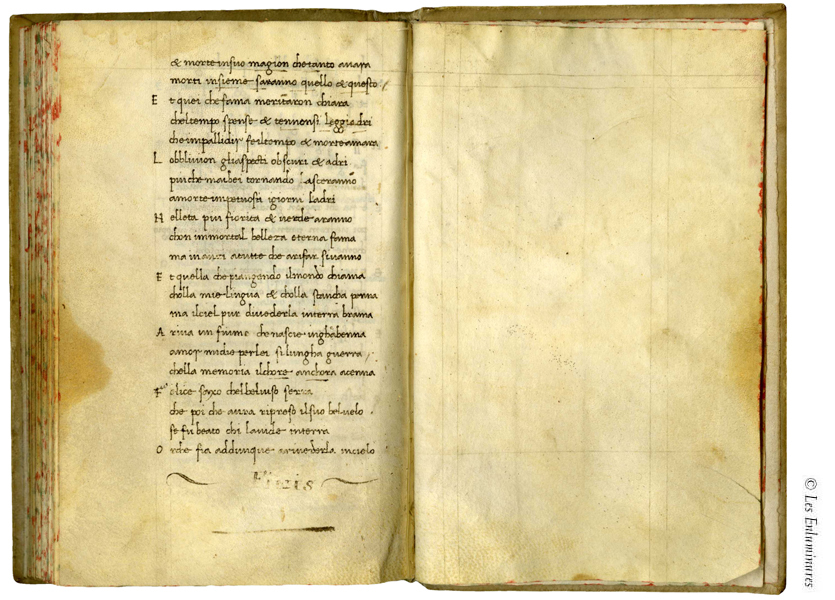 & morte in suo magion che tanto auara
morti insieme saranno quello & questo
E t quei che fama meritaron chiara
chel tempo spense & tennensi leggiadri
che impallidir fe il tempo & morte amara
L obbliuion gli aspecti obscuri & adri
piu che mai bei tornando lasceranno
a morte impetuosi i giorni ladri
N elleta piu fiorita & uerde aranno
chon immortal belleza eterna fama
ma inanzi a tutte che a rifar si uanno
E t quella che piangendo il mondo chiama
cholla mie lingua & cholla stancha penna
ma il ciel pur di uederla interra brama
A riua un fiume che nascie in ghabenna
amor mi die per lei si lungha guerra
che lla memoria il chore anchora acenna
F elice saxo chel bel uiso serra
che poi che aura ripreso il suo bel uelo
se fu beato chi la uide interra
O r che fia addunque a riuederla in cielo
Finis
© Les Enluminures